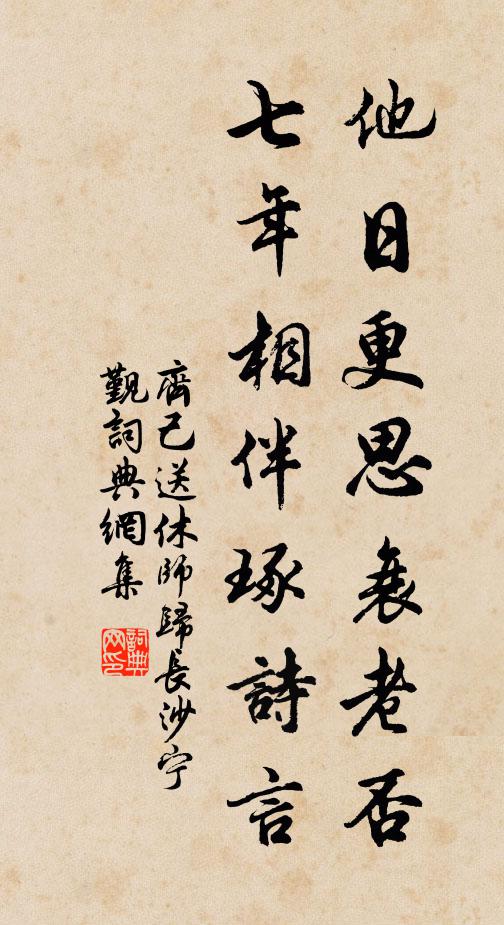 他日更思衰老否
七年相伴琢詩言
齊己送休師歸長沙宁
觀詞典網集
詞典
网印